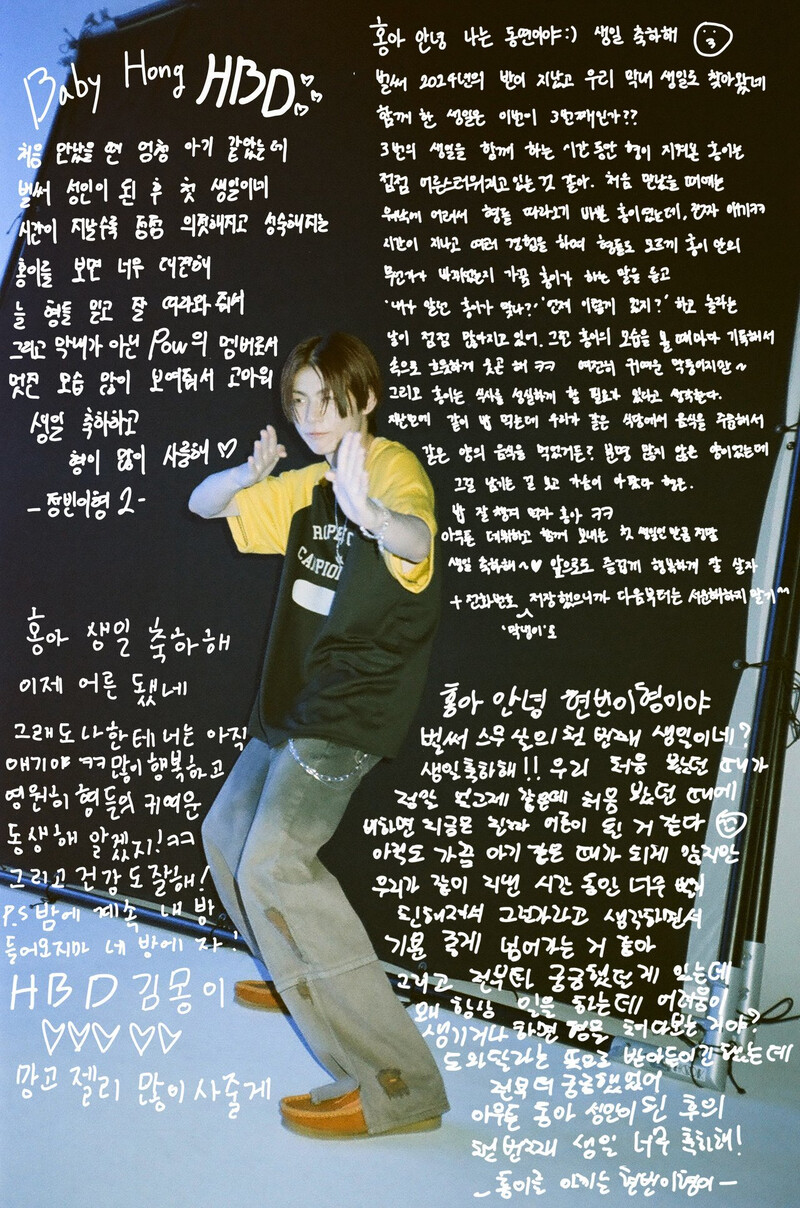 Baby Hong HBD
처음 만났을 땐 엄청 아기 같았는데
벌써 성인이 된 후 첫 생일이네
시간이 지날수록 점점 의젓해지고 성숙해지는
홍이를 보면 너무 대견해
늘 형들 믿고 잘 따라와줘서
그리고 막내가 아닌 Pow의 멤버로서
멋진 모습 많이 보여줘서 고마워
생일 축하하고
형이 많이 사랑해 ♡
-정빈이형 2-
홍아 생일 축하해
이제 어른 됐네
그래도 나한테 너는 아직
애기야 ㅋㅋ 많이 행복하고
영원히 형들의 귀여운
동생해 알겠지! ㅋㅋ
그리고 건강도 잘해!
P.S 밤에 계속 내 방
들어오지마 네 방에 자!
HBD 김몽이
♡♡♡♡♡
망고 젤리 많이 사줄게
홍아 안녕 나는 동연이야:) 생일 축하해
벌써 2024년의 반이 지났고 우리 막내 생일도 찾아왔네
함께 한 생일은 이번이 3번째인가??
3번의 생일을 함께 하는 시간동안 형이 지켜본 홍이는
점점 어른스러워지고 있는 것 같아. 처음 만났을 때에는
워낙에 어려서 형들 따라오기 바쁜 홍이였는데, 진짜 애기ㅋㅋ
시간이 지나고 여러 경험을 하며 형들도 모르게 홍이 안의
무언가가 바뀌었는지 가끔 홍이가 하는 말을 듣고
'내가 알던 홍이가 맞나?' '언제 이렇게 컸지?' 하고 놀라는
날이 점점 많아지고 있어. 그런 홍이의 모습을 볼 때마다 기특해서
속으로 흐뭇하게 웃곤 해 ㅋㅋ 여전히 귀여운 막둥이지만~
그리고 홍이는 식사를 성실하게 할 필요가 있다고 생각한다.
저번에 같이 밥 먹는데 우리가 같은 식당에서 음식을 주문해서
같은 양의 음식을 먹었거든? 분명 많지 않은 양이었는데
그걸 남기는 걸 보고 가슴이 아팠다 형은.
밥 잘 챙겨 먹자 홍아 ㅋㅋ
아무튼 데뷔하고 함께 보내는 첫 생일인 만큼 정말
생일 축하해~♡ 앞으로도 즐겁게 행복하게 잘 살자
+ 전화번호 저장했으니까 다음부터는 서운해하지 말기~
'막냉이'로
홍아 안녕 현빈이형이야
벌써 스무 살의 첫 번째 생일이네?
생일축하해!! 우리 처음 봤던 때가
정말 엊그제 같은데 처음 봤던 때에
비하면 지금은 진짜 어른이 된 거 같다
아직도 가끔 아기 같은 때가 되게 많지만
우리가 같이 지낸 시간 동안 너무
친해져서 그런가라고 생각하면서
기분 좋게 넘어가는 거 같아
그리고 전부터 궁금했던 게 있는데
왜 항상 일을 하는데 어려움이
생기거나 하면 형을 쳐다보는 거야?
도와달라는 뜻으로 받아들이긴 했는데
전부터 궁금했었어
아무튼 동아 성인이 된 후의
첫 번째 생일 너무 축하해!
-홍이를 아끼는 현빈이형이-